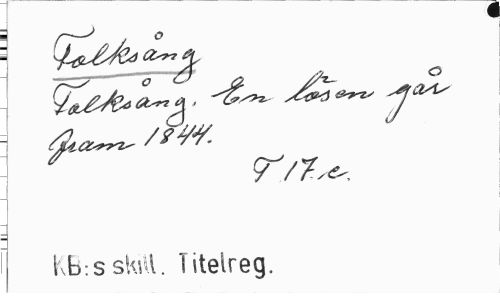 Folksång
Folksång. En lösen går
fram 1844.
T.17.c.
KB:s skill. Titelreg.